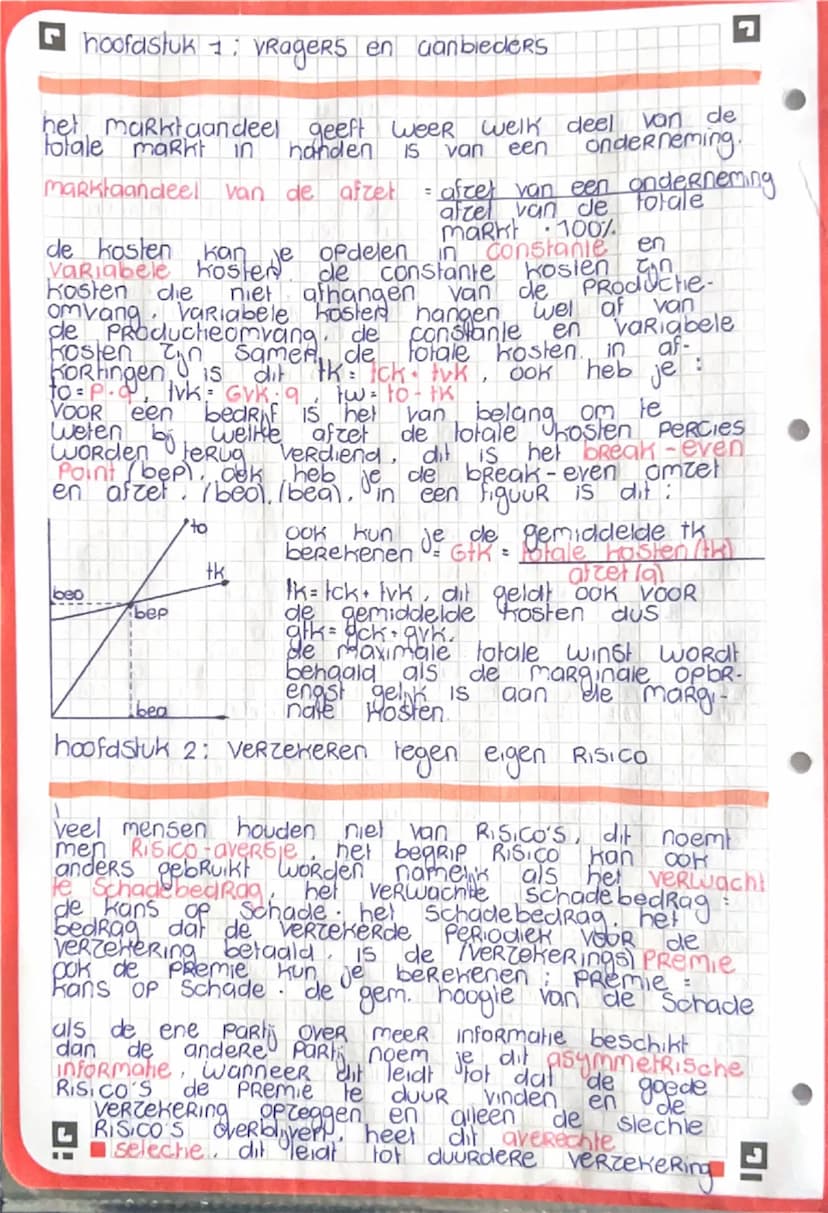 hoofdstuk 1: vragers en aanbieders
het marktaandeel geeft weer welk deel van de
totale markt in handen is van een onderneming.
marktaandeel van de afzet = afzet van een onderneming
afzet van de totale
markt · 100%
de kosten kan je opdelen in constante en
variabele kosten. de constante kosten zijn
kosten die niet afhangen van de productie-
omvang, variabele kosten hangen wel af van
de productieomvang. de constante en variabele
kosten zijn samen de totale kosten. in af-
kortingen is dit tk = tck + tvk, ook heb je :
to = p · q, tvk = gvk · q, tw = to - tk
voor een bedrijf is het van belang om te
weten bij welke afzet de totale kosten percies
worden terug verdiend, dit is het break-even
point (bep), ook heb je de break-even omzet
en afzet. (beo), (bea), in een figuur is dit :
to
tk
beo
bep
bea
ook kun je de gemiddelde tk
berekenen = Gtk = totale kosten (tk)
afzet (q)
tk = tck + tvk, dit geldt ook voor
de gemiddelde kosten dus
gtk = gck + gvk.
de maximale totale winst wordt
behaald als de marginale opbr-
engst gelijk is aan de margi-
nale kosten.
hoofdstuk 2: verzekeren tegen eigen risico
veel mensen houden niet van risico's, dit noemt
men risico-aversie, het begrip risico kan ook
anders gebruikt worden namelijk als het verwacht
te schadebedrag, het verwachte schadebedrag =
de kans op schade · het schadebedrag. het
bedrag dat de verzekerde periodiek voor de
verzekering betaald, is de (verzekerings) premie
ook de premie kun je berekenen : premie =
kans op schade · de gem. hoogte van de schade
als de ene partij over meer informatie beschikt
dan de andere partij noem je dit asymmetrische
informatie, wanneer dit leidt tot dat de goede
risico's de premie te duur vinden en de
verzekering opzeggen en alleen de slechte
risico's overblijven, heet dit averechte
selectie. dit leidt tot duurdere verzekering